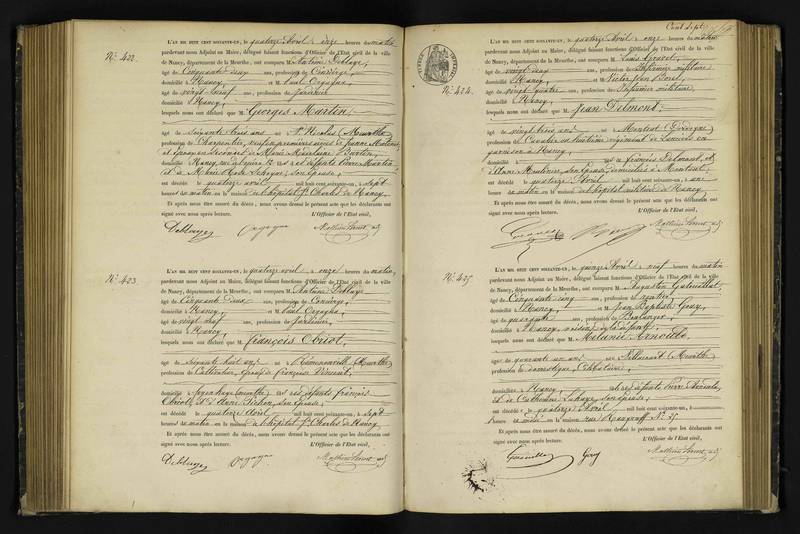 N.º 422.
L'AN MIL HUIT CENT SOIXANTE-UN, le quatorze Avril à onze heures du matin
pardevant nous Adjoint au Maire, délégué faisant fonctions d'Officier de l'Etat civil de la ville
de Nancy, département de la Meurthe, ont comparu M. Antoine Deblaye,
âgé de Cinquante deux ans, profession de Concierge,
domicilié à Nancy, et M. Paul
âgé de vingt neuf ans, profession de Jardinier
domicilié à Nancy,
lesquels nous ont déclaré que M. Georges Martin
âgé de Soixante trois ans né à St Nicolas (Meurthe)
profession de Charpentier, veuf en premières noces de Jeanne
et époux en secondes de Marie Madelaine
domicilié à Nancy, né des défunts Pierre Martin
et de son épouse
est décédé le quatorze avril mil huit cent soixante-un, à sept
heures du matin en la maison de l'hôpital St Charles de Nancy.
Et après nous être assuré du décès, nous avons dressé le présent acte que les déclarants ont
signé avec nous après lecture. L'Officier de l'Etat civil,
N.º 423
L'AN MIL HUIT CENT SOIXANTE-UN, le quatorze avril à onze heures du matin,
pardevant nous Adjoint au Maire, délégué faisant fonctions d'Officier de l'Etat civil de la ville
de Nancy, département de la Meurthe, ont comparu M. Antoine Deblaye
âgé de Cinquante deux ans, profession de Concierge,
domicilié à Nancy, et M. Paul
âgé de vingt neuf ans, profession de Jardinier,
domicilié à Nancy,
lesquels nous ont déclaré que M. françois Obriot,
âgé de Soixante huit ans né à Réménoville (Meurthe)
profession de Cultivateur, Epoux de françoise Vincent
domicilié à (Meurthe) né des défunts françois
Obriot, et d'Anne son épouse,
est décédé le quatorze Avril mil huit cent soixante-un, à sept
heures du matin en la maison de l'hôpital St Charles de Nancy
Et après nous être assuré du décès, nous avons dressé le présent acte que les déclarants ont
signé avec nous après lecture. L'Officier de l'Etat civil,
Cent Sept
N.º 424.
L'AN MIL HUIT CENT SOIXANTE-UN, le quatorze Avril à onze heures du matin
pardevant nous Adjoint au Maire, délégué faisant fonctions d'Officier de l'Etat civil de la ville
de Nancy, département de la Meurthe, ont comparu M. Louis
âgé de vingt deux ans, profession de Infirmier militaire
domicilié à Nancy, et M. Victor Jean
âgé de vingt quatre ans, profession de Infirmier militaire,
domicilié à Nancy,
lesquels nous ont déclaré que M. Jean Delmont,
âgé de vingt trois ans né à (Dordogne)
profession de Cavalier au huitième régiment de Lanciers en
garnison à Nancy,
domicilié à né de françois Delmont, et
d'Anne son épouse, domiciliés à
est décédé le quatorze Avril mil huit cent soixante-un, à une
heure du matin en la maison de l'hôpital militaire de Nancy
Et après nous être assuré du décès, nous avons dressé le présent acte que les déclarants ont
signé avec nous après lecture. L'Officier de l'Etat civil,
N.º 425
L'AN MIL HUIT CENT SOIXANTE-UN, le quinze Avril à neuf heures du matin
pardevant nous Adjoint au Maire, délégué faisant fonctions d'Officier de l'Etat civil de la ville
de Nancy, département de la Meurthe, ont comparu M. Augustin
âgé de Cinquante cinq ans, profession de rentier,
domicilié à Nancy, et M. Jean Baptiste Gouy,
âgé de quarante ans, profession de Boulanger,
domicilié à Nancy, voisins de la défunte,
lesquels nous ont déclaré que M. Mélanie Arnould,
âgée de quarante un ans née à (Meurthe)
profession de domestique, Célibataire,
domiciliée à Nancy, née des défunts Pierre Arnould,
et de Catherine son épouse,
est décédée le quatorze Avril mil huit cent soixante-un, à
heure en la maison rue N.º 25.
Et après nous être assuré du décès, nous avons dressé le présent acte que les déclarants ont
signé avec nous après lecture. L'Officier de l'Etat civil,
Gouy